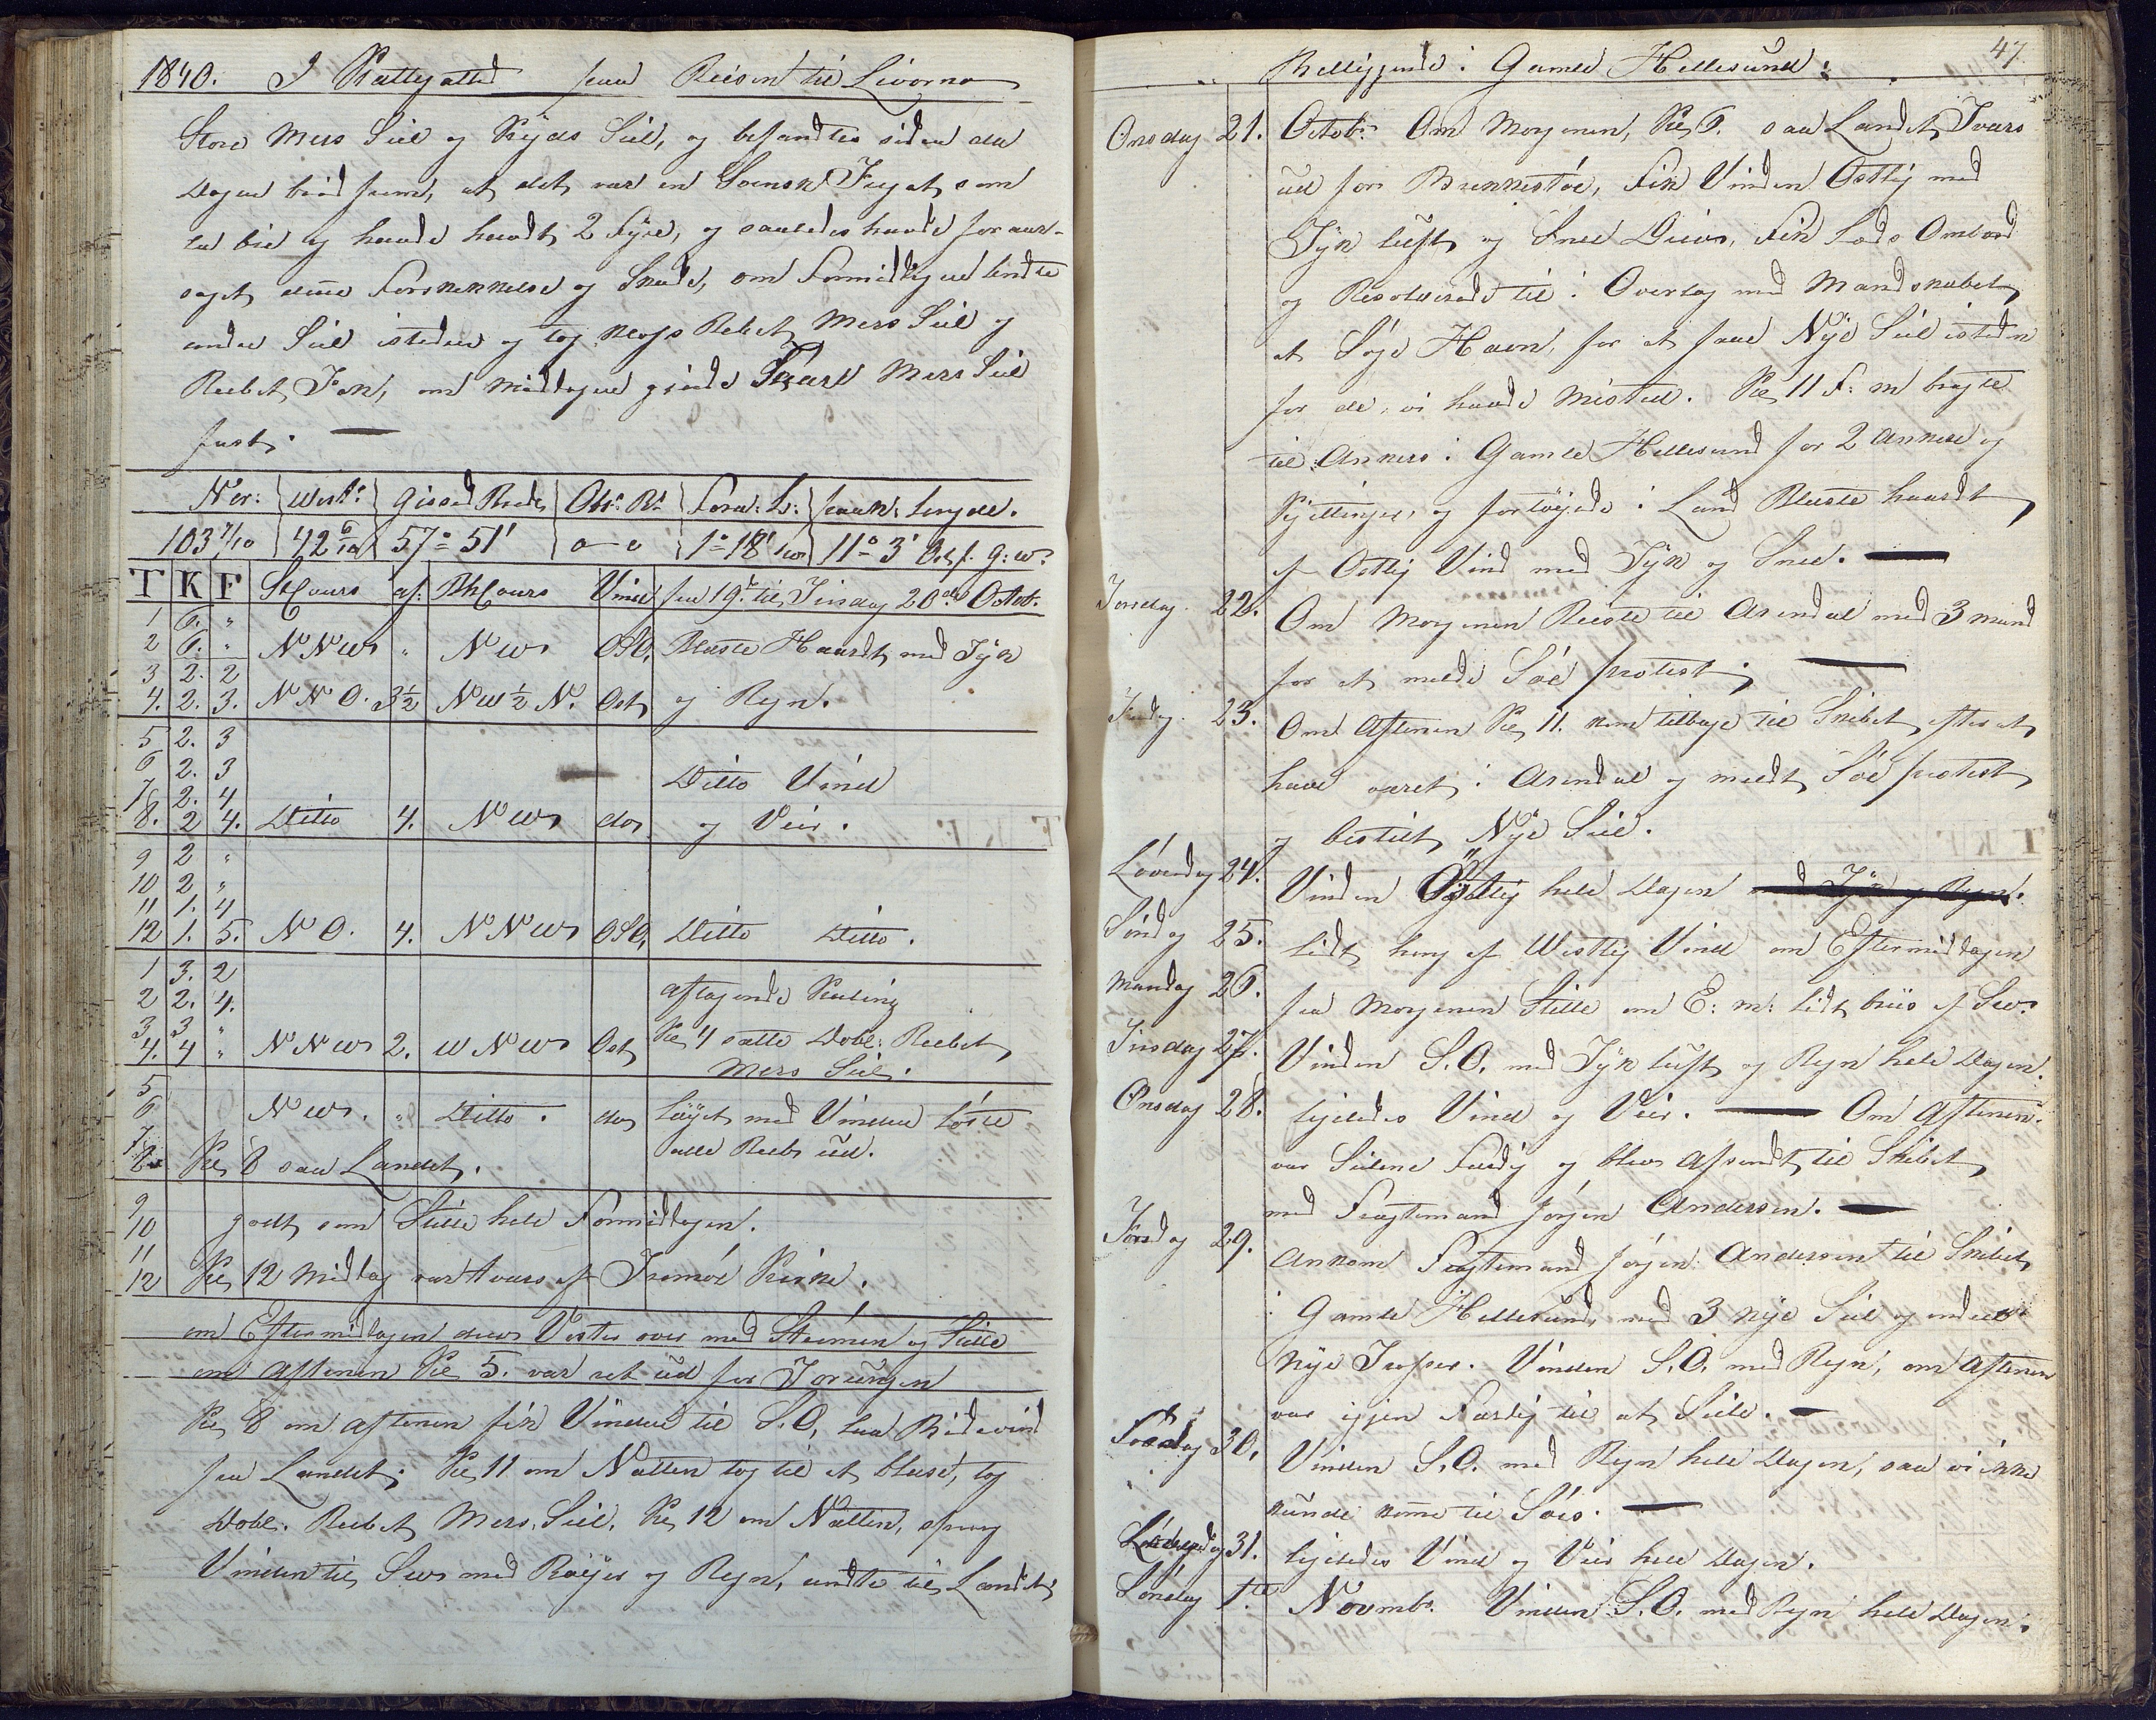 1840. I Kattegatted paa Reisen til Livorno
Store Mers Seil og Kryds Seil, og befandtes siden da
Dagen brød frem, at det var en Svensk Fregat, som
laa bie og havde havdt 2 Fyre, og saaledes havde foraar-
saget denne Forskrækkelse og Skade, om Formidagen undte
andre Seil isteden og tog Klos Rebet Mers Seil og
Reebet Fok, om Middagen gjorde Store Mers Seil
fast. —
Nor: Westr. Gisset Brede Obs: Br. Forа: L: paak: Lengde.
103 7/10 42 6/10 57° 51' o—o 1° 18' 11° 3' Ost f. G: W.
T K F StCours af. BhCours Vind fra 19de til Tirsdag 20de Octob.
1 6. "
2 6. " NNW " NW OSO, Blæste Haardt med Tyk
3 2. 2
4. 2. 3. NNO. 3½ NW½N. Ost og Regn.
5 2. 3
6 2. 3 Ditto Vind
7 2. 4
8. 2 4. Ditto 4. NW do og Veir.
9 2 "
10 2 "
11 1. 4
12 1. 5. NO. 4. NNW OSO, Ditto Ditto.
1 3. 2
2 2. 4. aftagende Kuling
3 3 "
4. 4 " NNW 2. WNW Ost Kl 4 satte Dobl: Reebet
Mers Seil.
5
6 NW. " Ditto. do løyet med Vinden løste
7 alle Reeb ud.
8 Kl 8 saa Landet.
9
10 godt som Stille hele Formidagen.
11
12 Kl 12 Midag var tvers af Tromøe Kirke.
om Eftermidagen drev Vester over med Strømen og Stille
om Aftenen Kl 5. var ret ud for Torungen
Kl 8 om Aftenen fik Vinden til S.O. laa Bidevind
fra Landet. Kl 11 om Natten tog til at blæse, tog
Dobl. Reebet Mers. Seil. Kl 12 om Natten, sprang
Vinden til SW med Bøyer og Regn, vendte til Landet,
47
Beliggende i Gamle Hellesund.
Onsdag 21. Octobr. Om Morgenen, Kl 6. saa Landet Tvers
ud for Brekkestøe, Fik Vinden Ostlig med
Tyk luft og Snee Driv, Fik Lods Ombord
og Resolverede til i Overlag med Mandskabet
at Søge Havn, for at faae Nye Seil isteden
for de, vi havde Mistet. Kl 11 F: m bragte
til Ankers i Gamle Hellesund for 2 Ankere og
Kjettinger, og fortøyede i Land Blæste haardt
af Ostlig Vind med Tyk og Snee. —
Torsdag. 22. Om Morgenen Reiste til Arendal med 3 mand
for at melde Søe protest. —
Fredag. 23. Om Aftenen Kl 11. kom tilbage til Skibet, efter at
have været i Arendal og meldt Søe protest
og bestilt Nye Seil.
Løverdag 24. Vinden Østlig hele Dagen med Tyk og Regn.
Søndag 25. Lidt haug af Westlig Vind om Eftermidagen
Mandag 26. fra Morgenen Stille om E: m: lidt briis af SW.
Tirsdag 27. Vinden S.O. med Tyk luft og Regn hele Dagen.
Onsdag 28. ligeledes Vind og Veir. — Om Aftenen.
var Seilene Færdig og blev afsendt til Skibet
med Fragtemand Jørgen Andersen. —
Torsdag 29. Ankom Fragtemand Jørgen Andersen til Skibet
i Gamle Hellesund, med 3 nye Seil og endeel
Nye Trosser. Vinden S.O. med Regn, om Aftenen
var igjen Færdig til at Seile. —
Fredag 30. Vinden S.O. med Regn hele Dagen, saa vi ikke
kunde komme til Søes. —
Løverdag 31. ligeledes Vind og Veir hele Dagen.
Søndag 1te Novembr. Vinden S.O. med Regn hele Dagen.